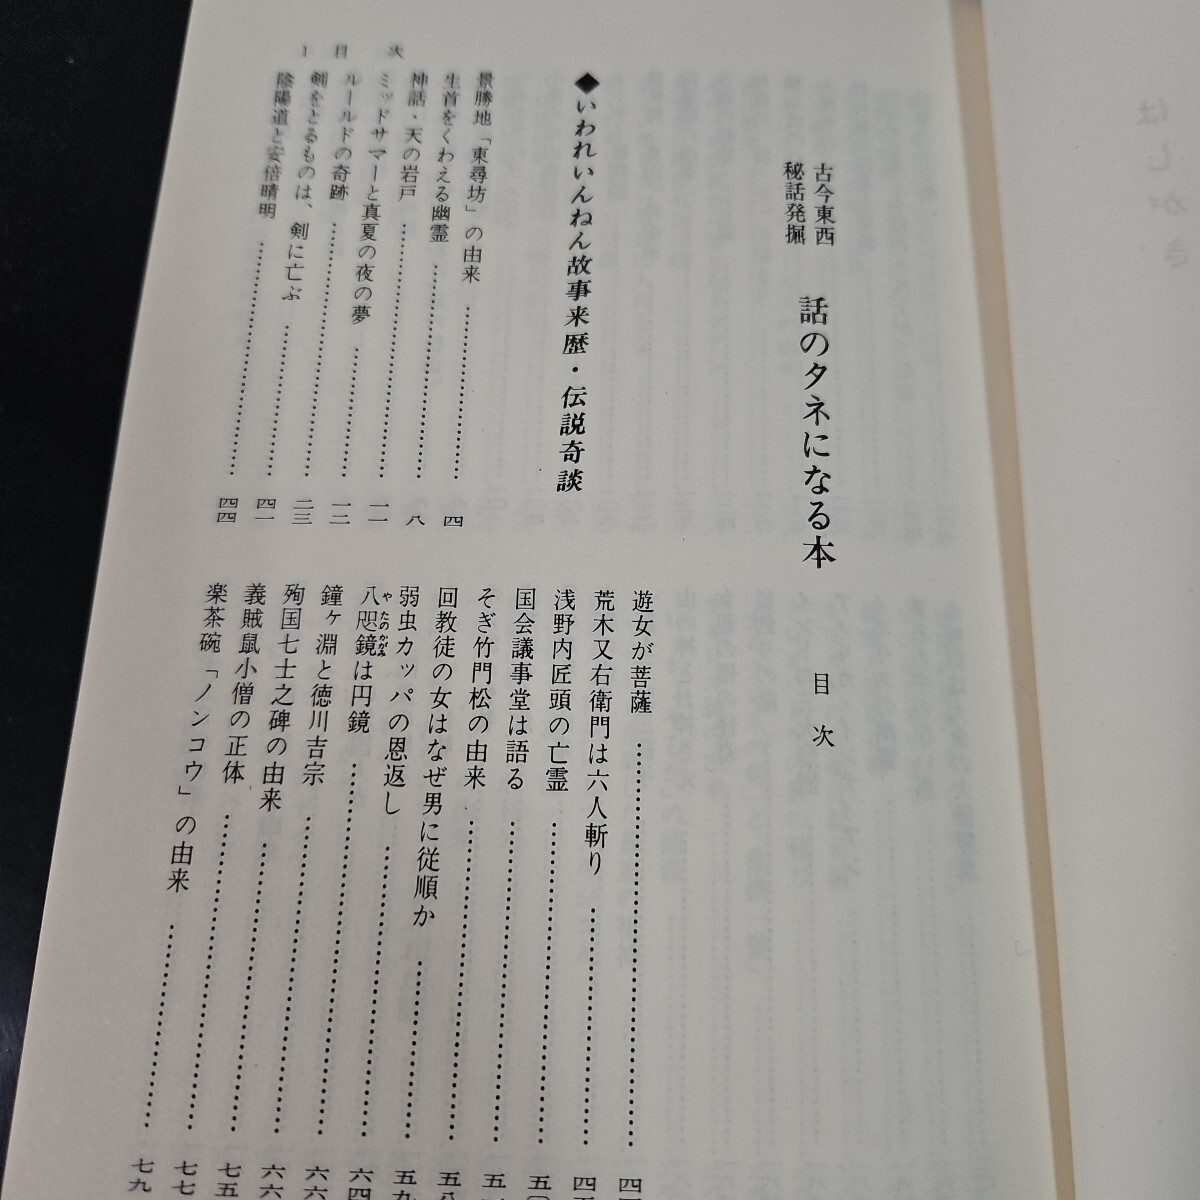 古今東西
秘話発掘
話のタネになる本
目次
◆いわれいんねん故事来歴・伝説奇談
景勝地「東尋坊」の由来……四
生首をくわえる幽霊……八
神話・天の岩戸……一一
ミッドサマーと真夏の夜の夢……一二
ルールドの奇跡……二三
剣をとるものは、剣に亡ぶ……四一
陰陽道と安倍晴明……四四
遊女が菩薩……
荒木又右衛門は六人斬り……
浅野内匠頭の亡霊……
国会議事堂は語る……
そぎ竹門松の由来……
回教徒の女はなぜ男に従順か……五八
弱虫カッパの恩返し……五九
八咫鏡は円鏡……六四
やたのかがみ
鐘ヶ淵と徳川吉宗……六六
殉国七士之碑の由来……六六
義賊鼠小僧の正体……七五
楽茶碗「ノンコウ」の由来……七七
七九
1 目次
はしがき